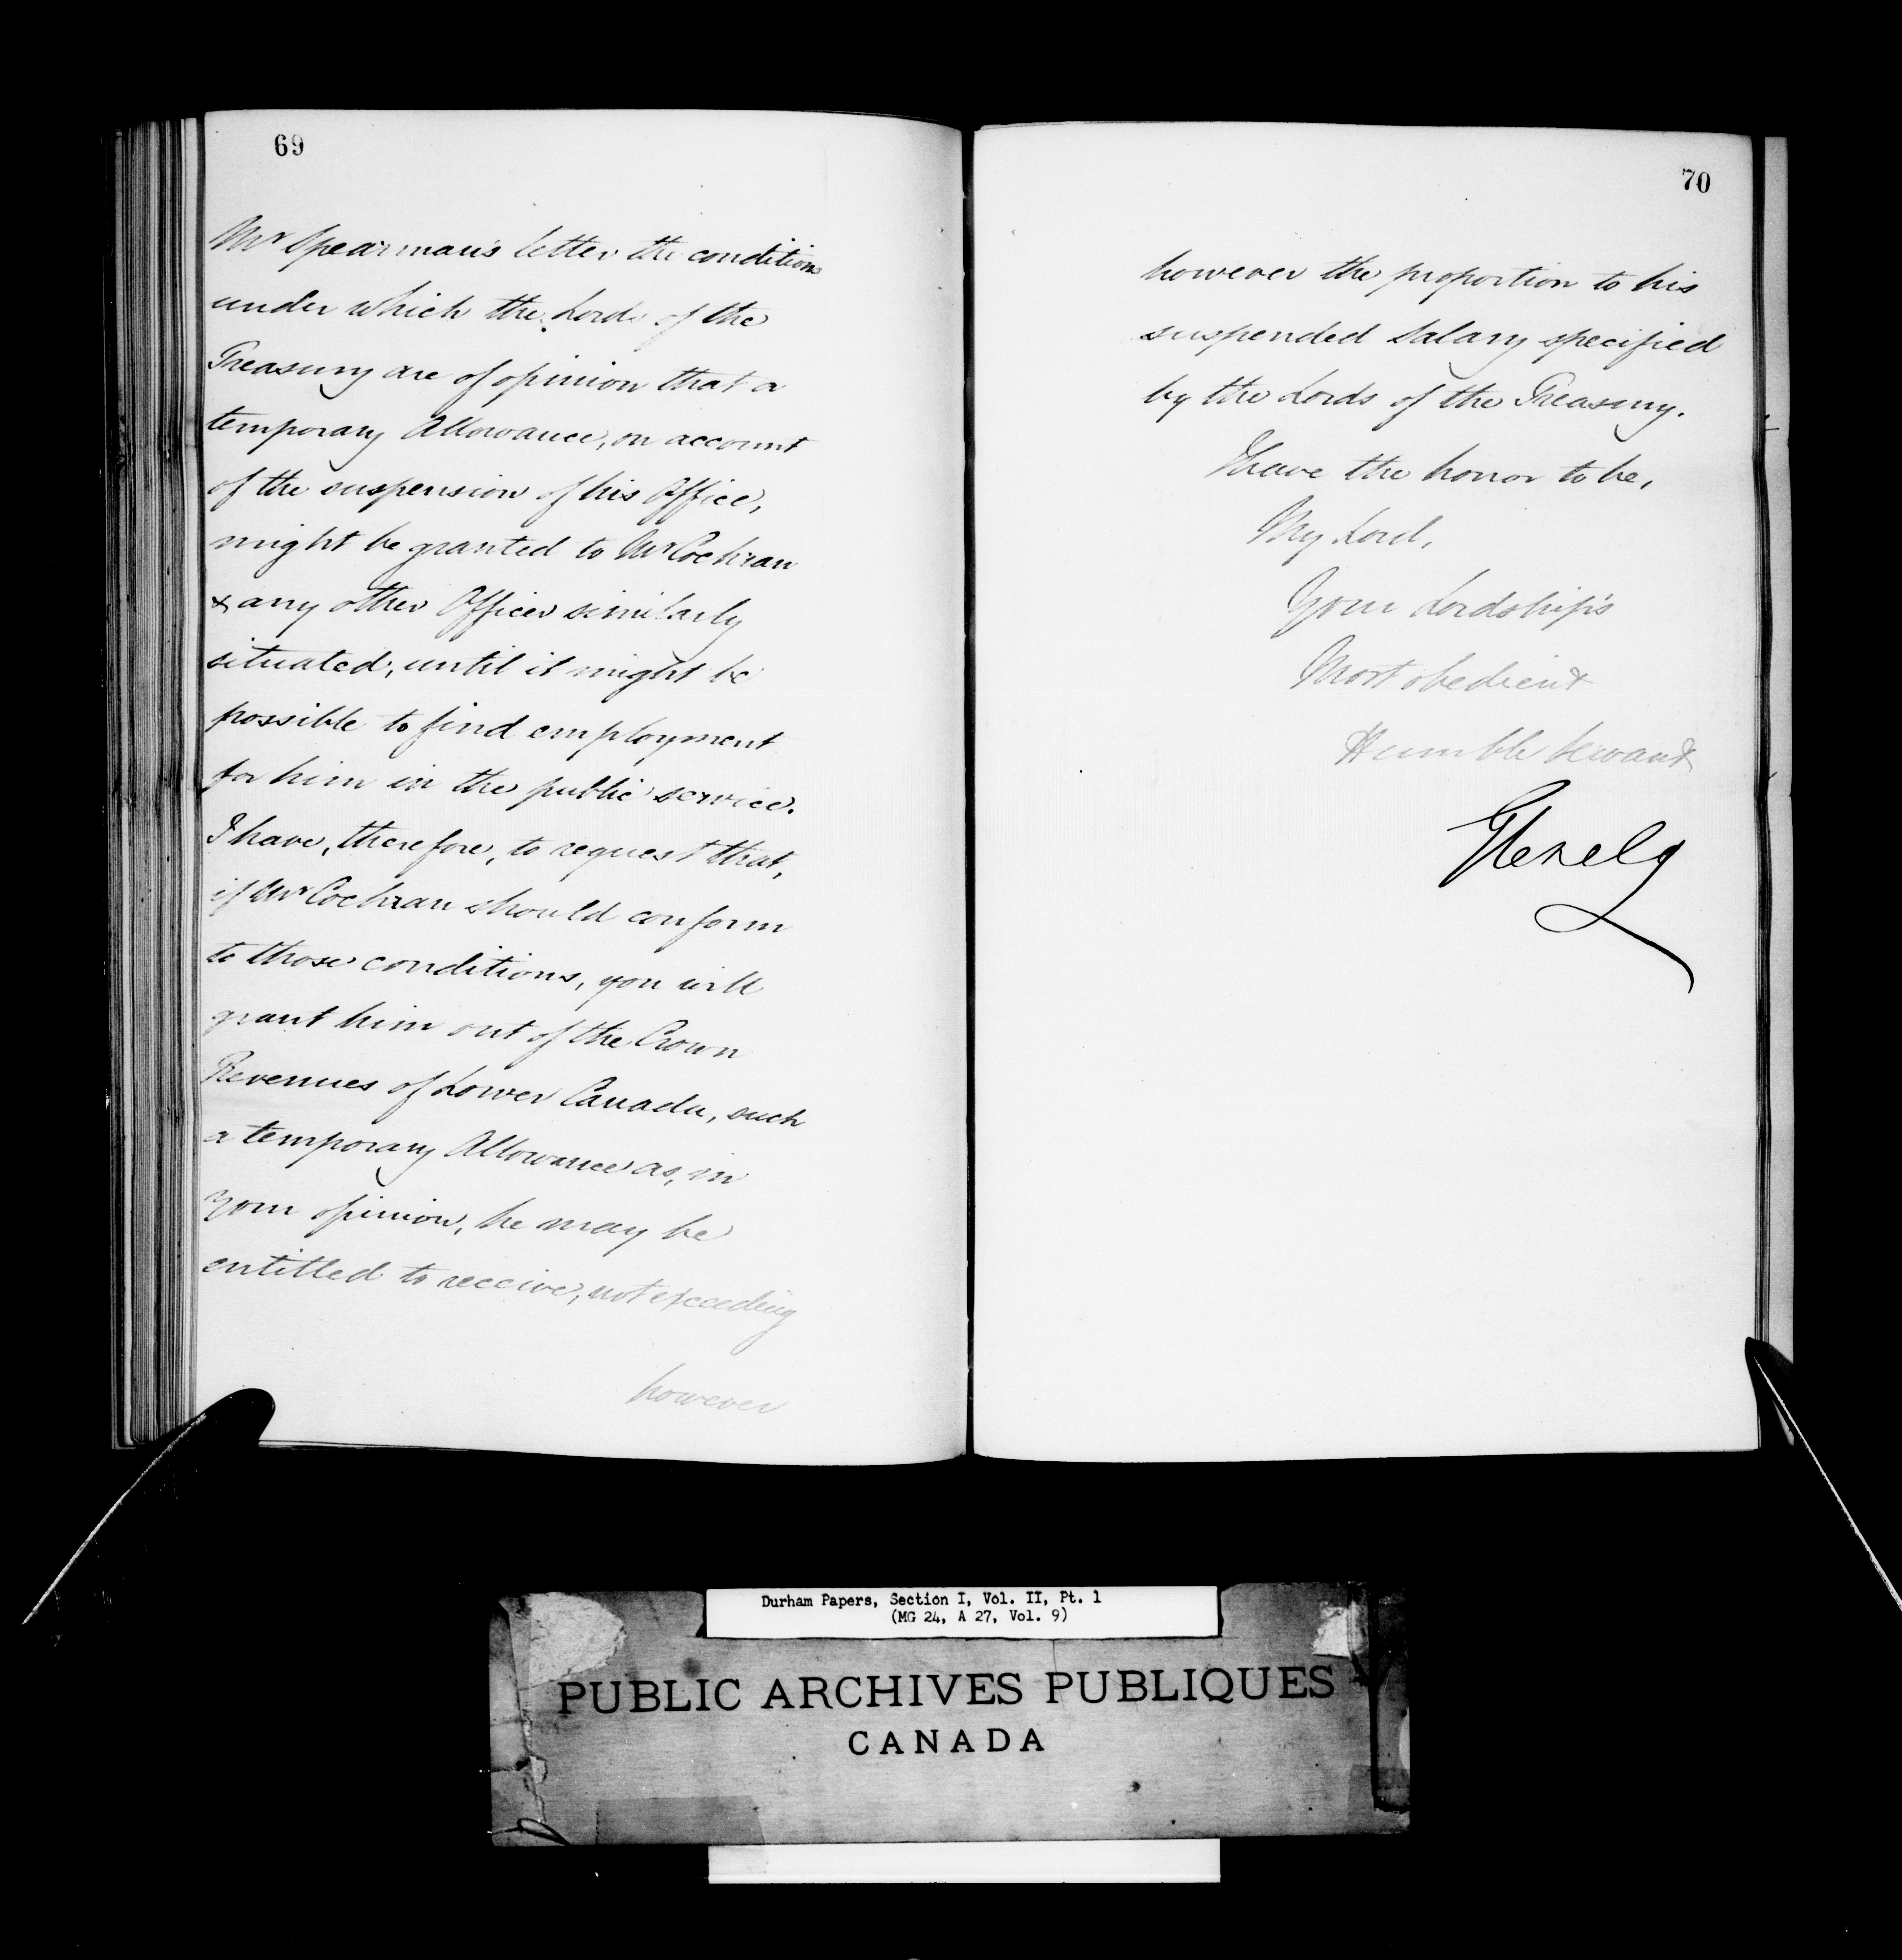 69
Mr Spearman's letter the conditions
under which the Lords of the
Treasury are of opinion that a
temporary Allowance, on account
of the suspension of his Office,
might be granted to Mr Cochran
& any other Officer similarly
situated, until it might be
possible to find employment
for him in the public service.
I have, therefore, to request that,
if Mr Cochran should conform
to those conditions, you will
grant him out of the Crown
Revenues of Lower Canada, such
a temporary Allowance as, in
your opinion, he may be
entitled to receive, not exceeding
however
70
however the proportion to his
suspended Salary specified
by the Lords of the Treasury.
I have the honor to be,
My Lord,
Your Lordship's
Most obedient
Humble Servant
Glenelg
Durham Papers, Section I, Vol. II, Pt. 1
(MG 24, A 27, Vol. 9)
PUBLIC ARCHIVES PUBLIQUES
CANADA